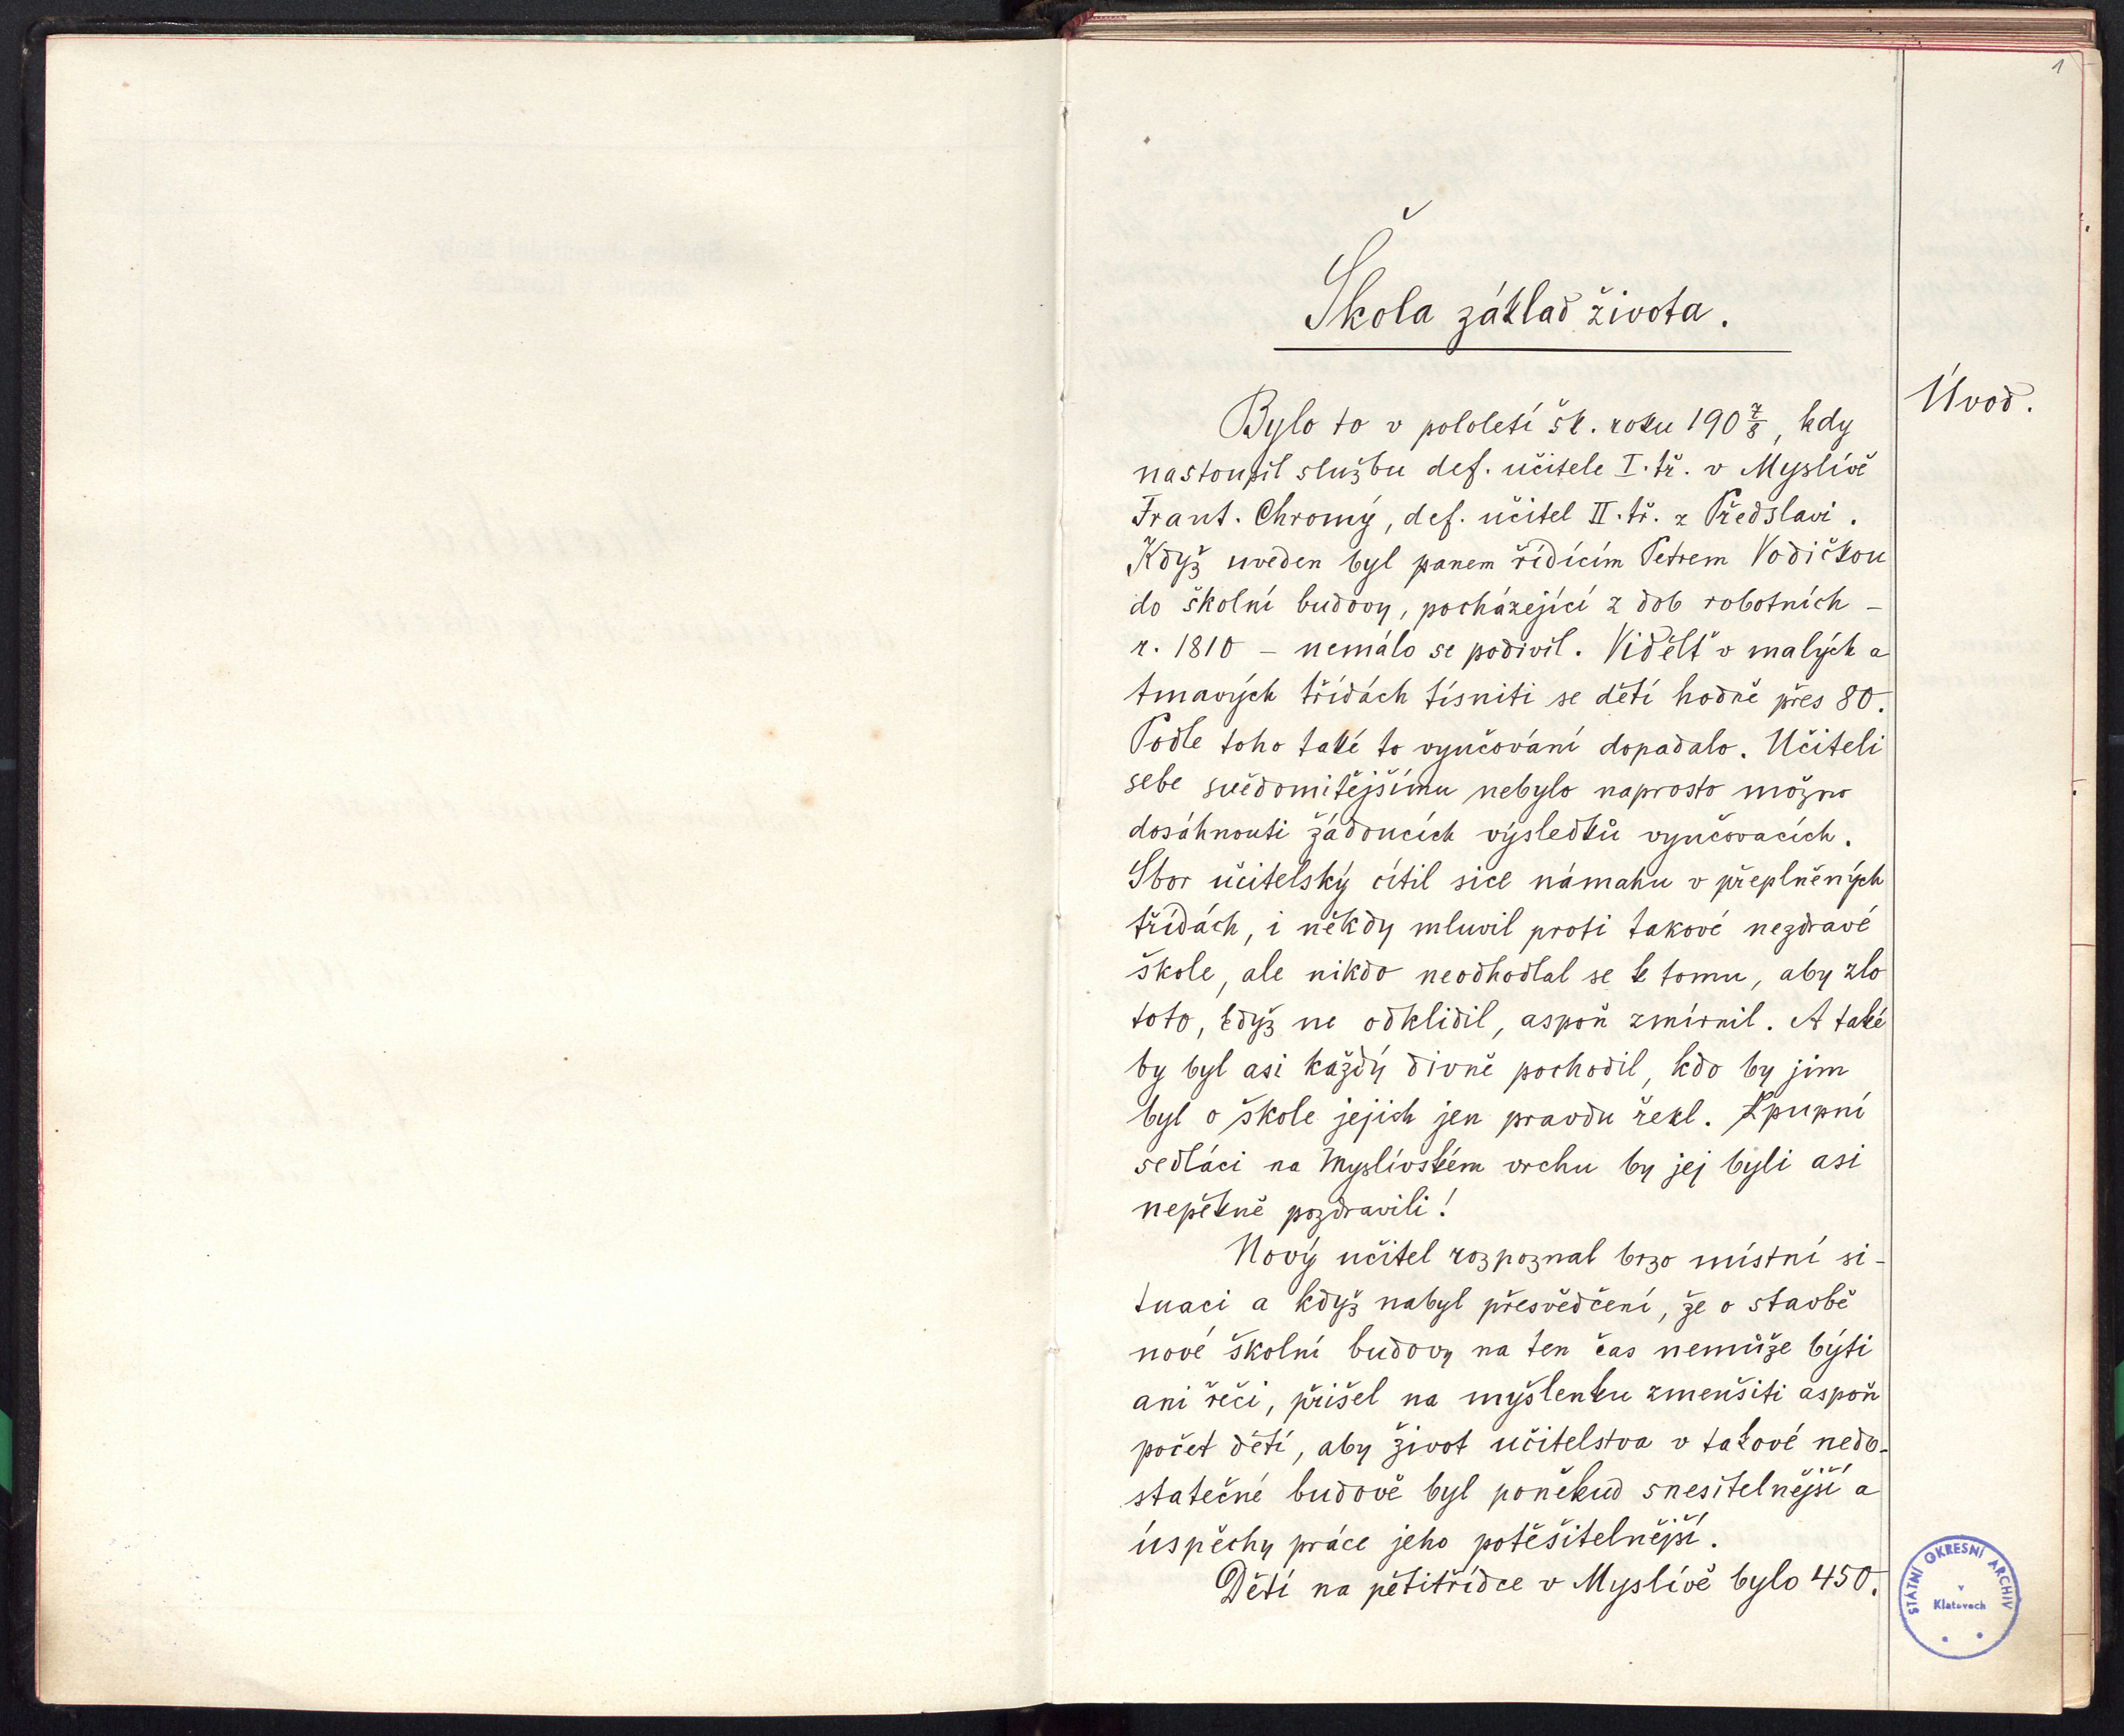 1
Škola základ života.
Úvod.
Bylo to v pololetí šk. roku 190 7/8, kdy
nastoupil službu def. učitele I. tř. v Myslívě
Frant. Chromý, def. učitel II. tř. z Předslavi.
Když uveden byl panem řídícím Petrem Vodičkou
do školní budovy, pocházející z dob robotních –
r. 1810 – nemálo se podivil. Viděltˇ v malých a
tmavých třídách tísniti se dětí hodně přes 80.
Podle toho také to vyučování dopadalo. Učiteli
sebe svědomitějšímu nebylo naprosto možno
dosáhnouti žádoucích výsledků vyučovacích.
Sbor učitelský cítil sice námahu v přeplněných
třídách, i někdy mluvil proti takové nezdravé
škole, ale nikdo neodhodlal se k tomu, aby zlo
toto, když ne odklidil, aspoň zmírnil. A také
by byl asi každý divně pochodil, kdo by jim
byl o škole jejich jen pravdu řekl. Zpupní
sedláci na Myslívském vrchu by jej byli asi
nepěkně pozdravili!
Nový učitel rozpoznal brzo místní si-
tuaci a když nabyl přesvědčení, že o stavbě
nové školní budovy na ten čas nemůže býti
ani řeči, přišel na myšlenku zmenšiti aspoň
počet dětí, aby život učitelstva v takové nedo-
statečné budově byl poněkud snesitelnější a
úspěchy práce jeho potěšitelnější.
Dětí na pětitřídce v Myslívě bylo 450.
STÁTNÍ OKRESNÍ ARCHIV
v
Klatovech